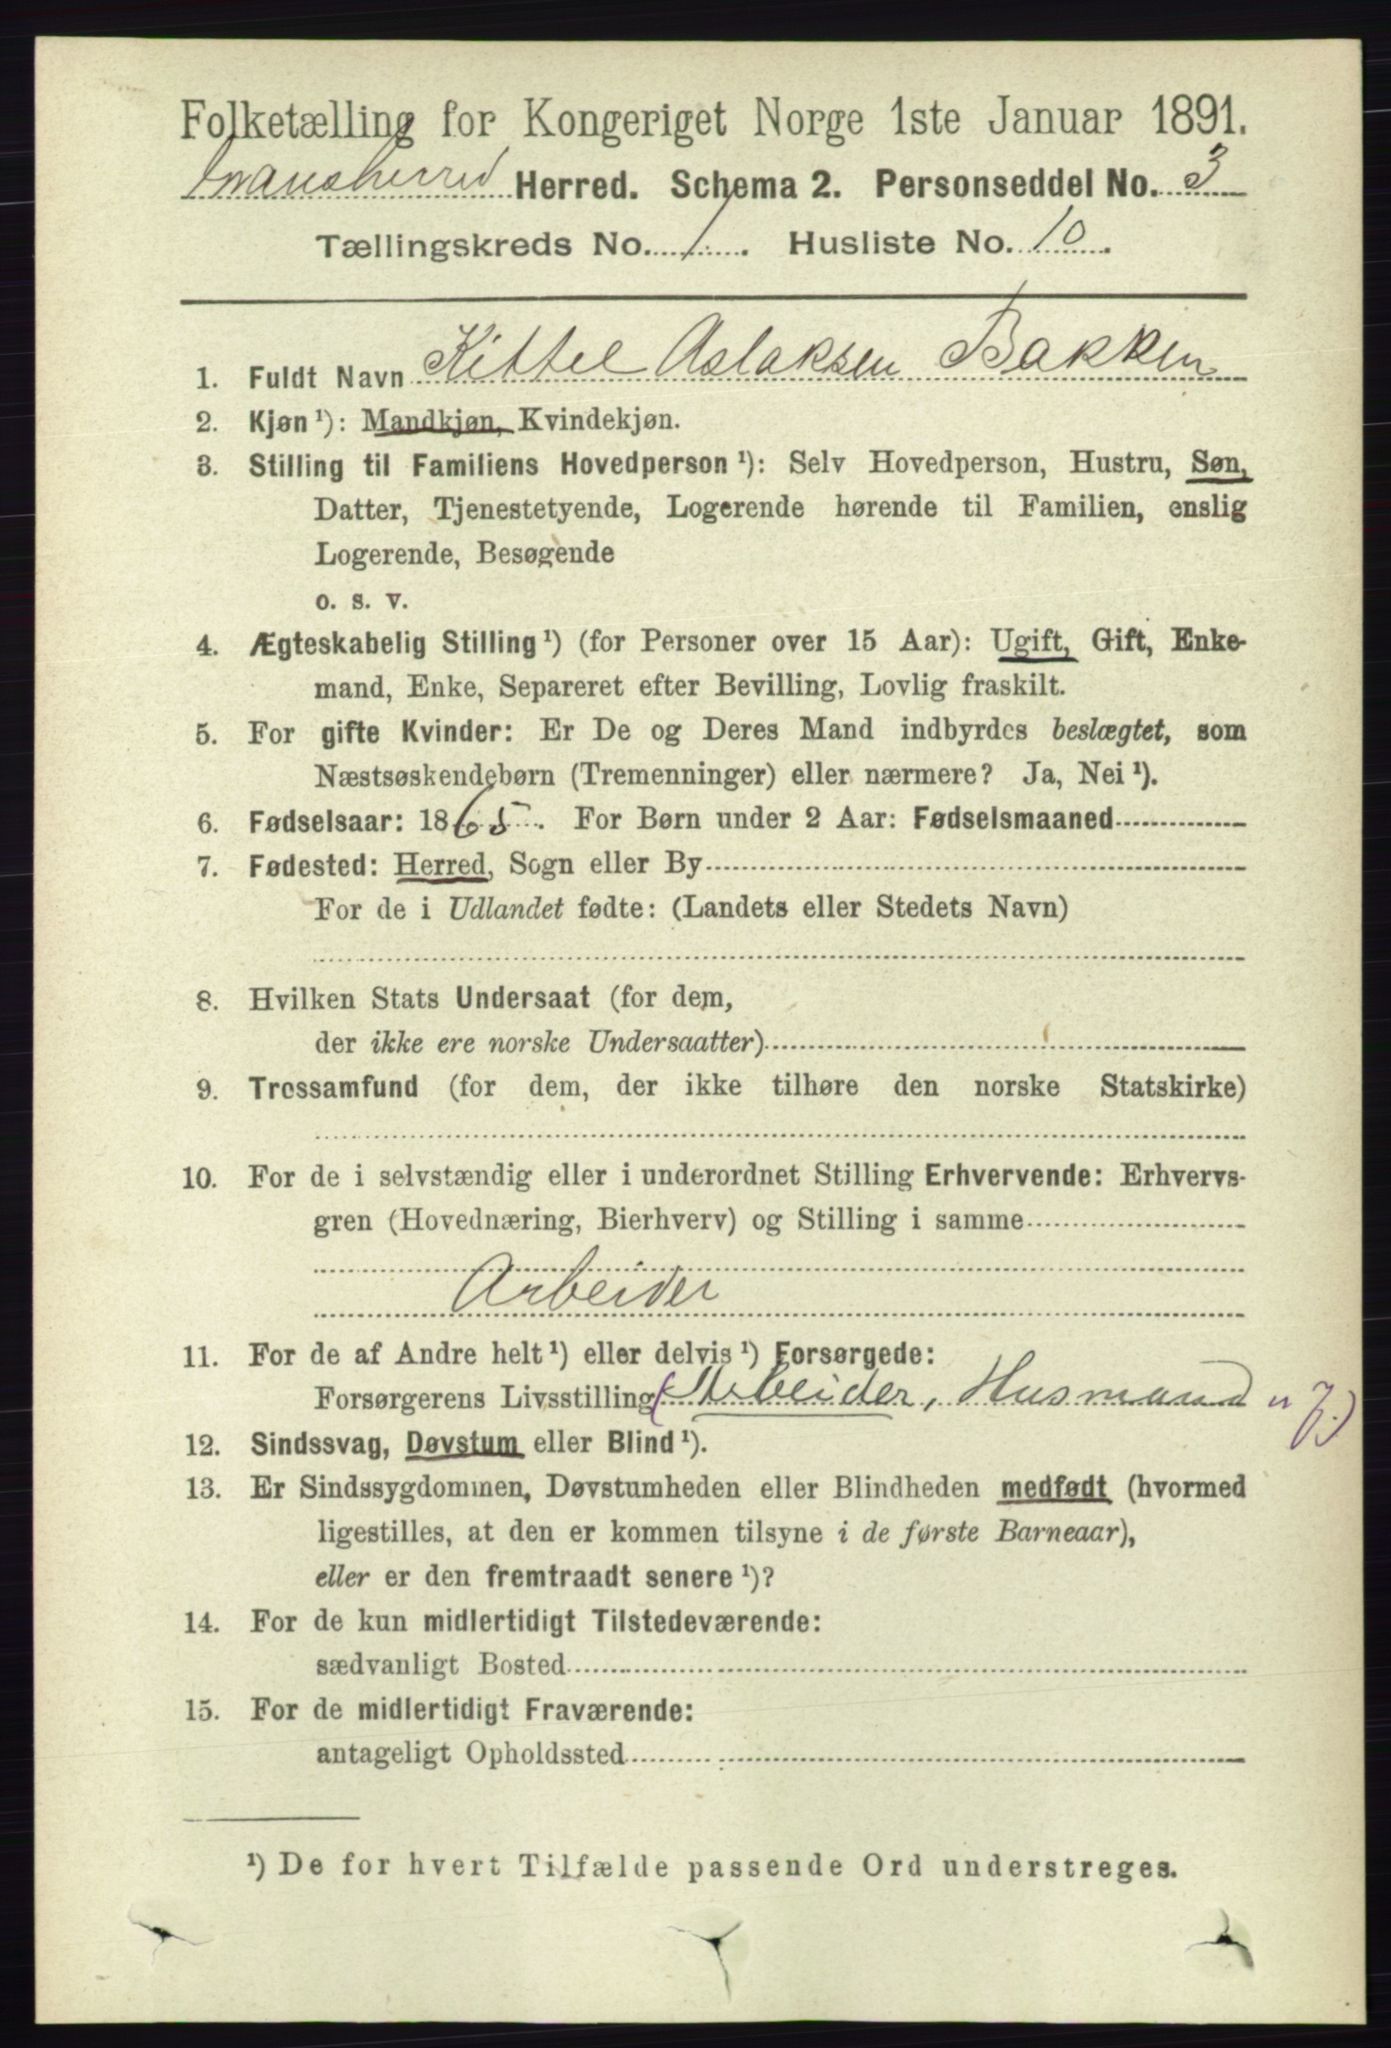 Folketælling for Kongeriget Norge 1ste Januar 1891.
Gransherred Herred. Schema 2. Personseddel No. 3
Tællingskreds No. 1. Husliste No. 10.
1. Fuldt Navn Kittel Aslaksen Bakken
2. Kjøn ¹): Mandkjøn, Kvindekjøn.
3. Stilling til Familiens Hovedperson ¹): Selv Hovedperson, Hustru, Søn,
Datter, Tjenestetyende, Logerende hørende til Familien, enslig
Logerende, Besøgende
o. s. v.
4. Ægteskabelig Stilling ¹) (for Personer over 15 Aar): Ugift, Gift, Enke-
mand, Enke, Separeret efter Bevilling, Lovlig fraskilt.
5. For gifte Kvinder: Er De og Deres Mand indbyrdes beslægtet, som
Næstsøskendebørn (Tremenninger) eller nærmere? Ja, Nei ¹).
6. Fødselsaar: 1865. For Børn under 2 Aar: Fødselsmaaned
7. Fødested: Herred, Sogn eller By
For de i Udlandet fødte: (Landets eller Stedets Navn)
8. Hvilken Stats Undersaat (for dem,
der ikke ere norske Undersaatter)
9. Trossamfund (for dem, der ikke tilhøre den norske Statskirke)
10. For de i selvstændig eller i underordnet Stilling Erhvervende: Erhvervs-
gren (Hovednæring, Bierhverv) og Stilling i samme
Arbeider
11. For de af Andre helt ¹) eller delvis ¹) Forsørgede:
Forsørgerens Livsstilling (Arbeider, Husmand
12. Sindssvag, Døvstum eller Blind ¹).
13. Er Sindssygdommen, Døvstumheden eller Blindheden medfødt (hvormed
ligestilles, at den er kommen tilsyne i de første Barneaar),
eller er den fremtraadt senere ¹)?
14. For de kun midlertidigt Tilstedeværende:
sædvanligt Bosted
15. For de midlertidigt Fraværende:
antageligt Opholdssted
¹) De for hvert Tilfælde passende Ord understreges.